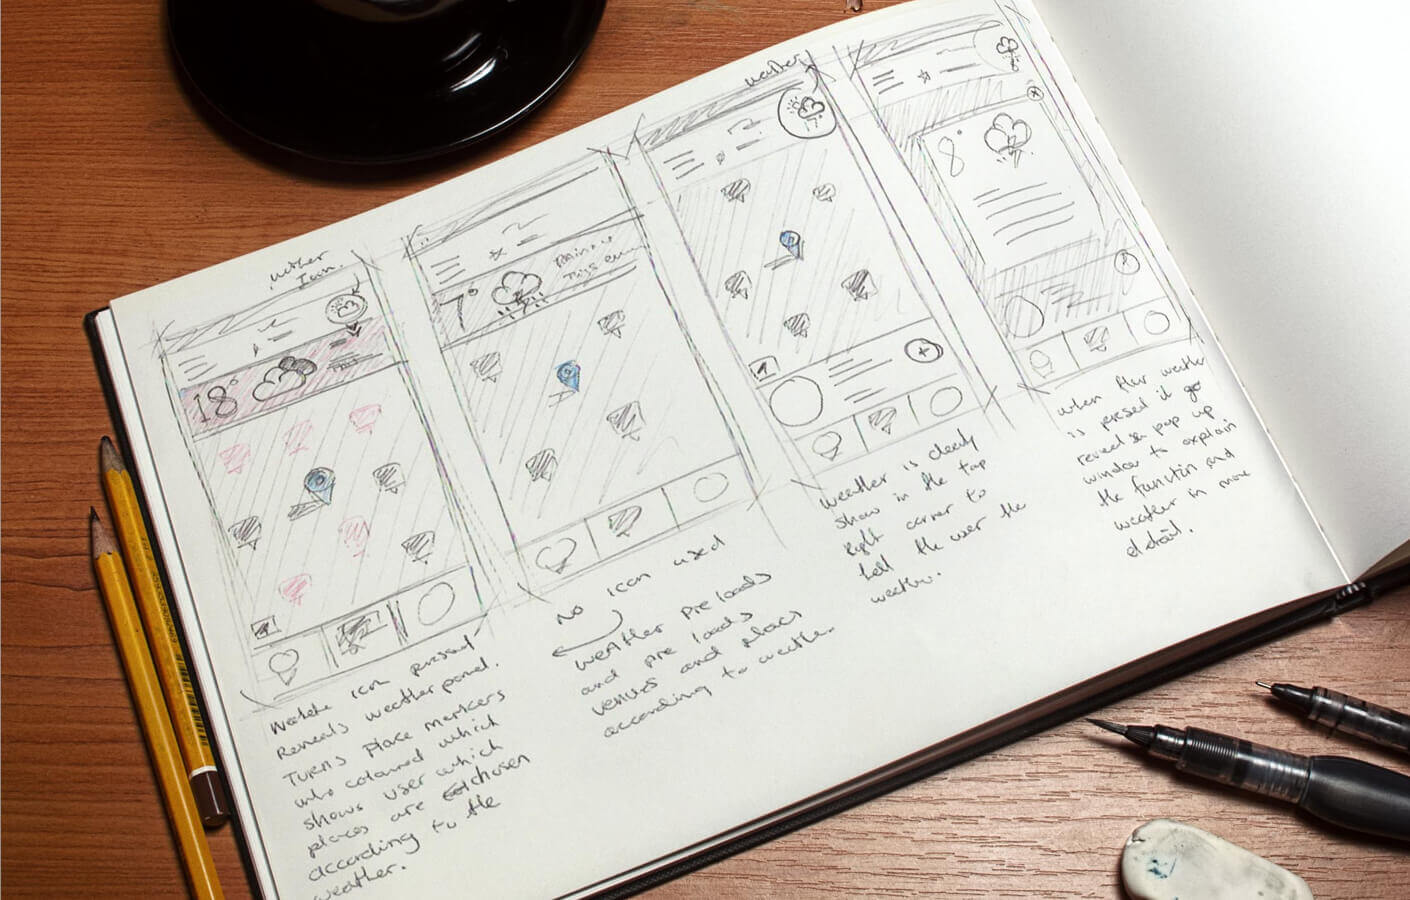 wether
Icon
18°
weatte icon pressed
Reveals weatherpanel.
Turns place markers
into coloured which
shows user which
places are chosen
according to the
weather.
7°
Rainy
This eve
No icon used
weather pre loads
and pre loads
venues and places
according to weather.
weather
weather is clearly
show in the top
right corner to
tell the user the
weather.
8°
when the weather
is pressed it
reveals a pop up
window to explain
the function and
weather in more
detail.